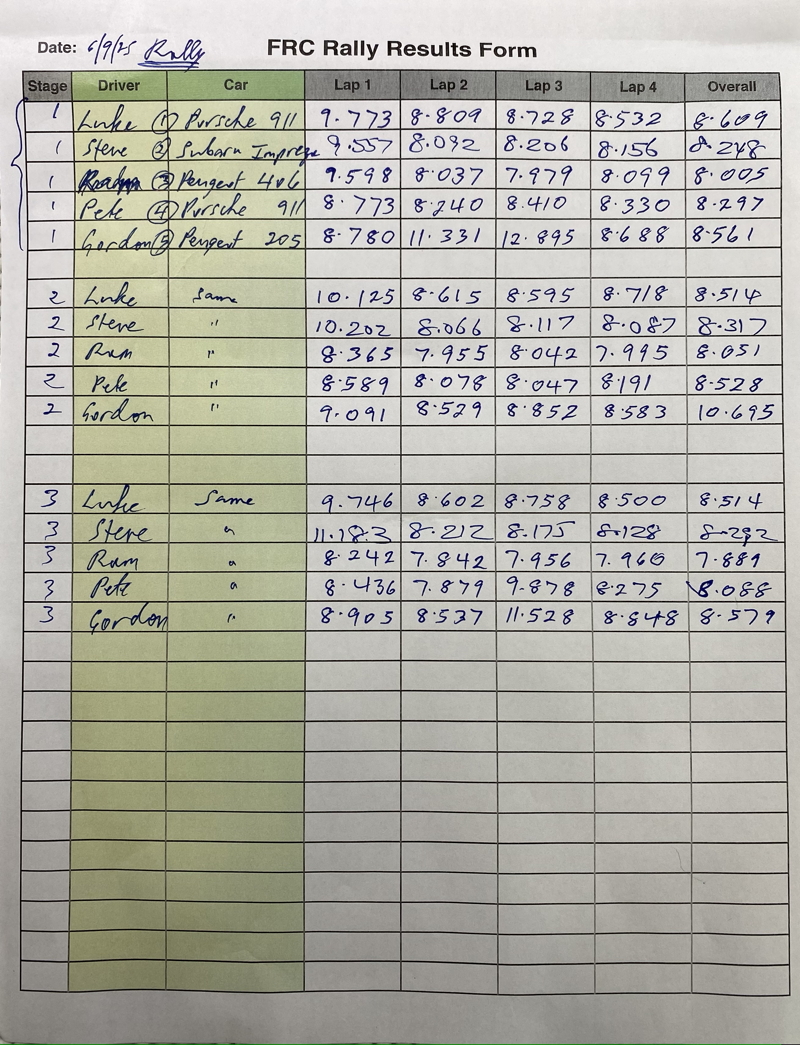 Date: 6/9/25 Rally FRC Rally Results Form
Stage Driver Car Lap 1 Lap 2 Lap 3 Lap 4 Overall
1 Luke ① Porsche 911 9.773 8.809 8.728 8.532 8.609
1 Steve ② Subaru Impreza 9.557 8.092 8.206 8.156 8.248
1 ③ Peugeot 406 9.598 8.037 7.979 8.099 8.005
1 Pete ④ Porsche 911 8.773 8.240 8.410 8.330 8.297
1 Gordon ⑤ Peugeot 205 8.780 11.331 12.895 8.688 8.561
2 Luke Same 10.125 8.615 8.595 8.718 8.514
2 Steve " 10.202 8.066 8.117 8.087 8.317
2 Ram " 8.365 7.955 8.042 7.995 8.051
2 Pete " 8.589 8.078 8.047 8.191 8.528
2 Gordon " 9.091 8.529 8.852 8.583 10.695
3 Luke Same 9.746 8.602 8.758 8.500 8.514
3 Steve " 11.183 8.212 8.175 8.128 8.292
3 Ram " 8.242 7.842 7.956 7.960 7.889
3 Pete " 8.436 7.879 9.878 8.275 8.088
3 Gordon " 8.905 8.537 11.528 8.848 8.579